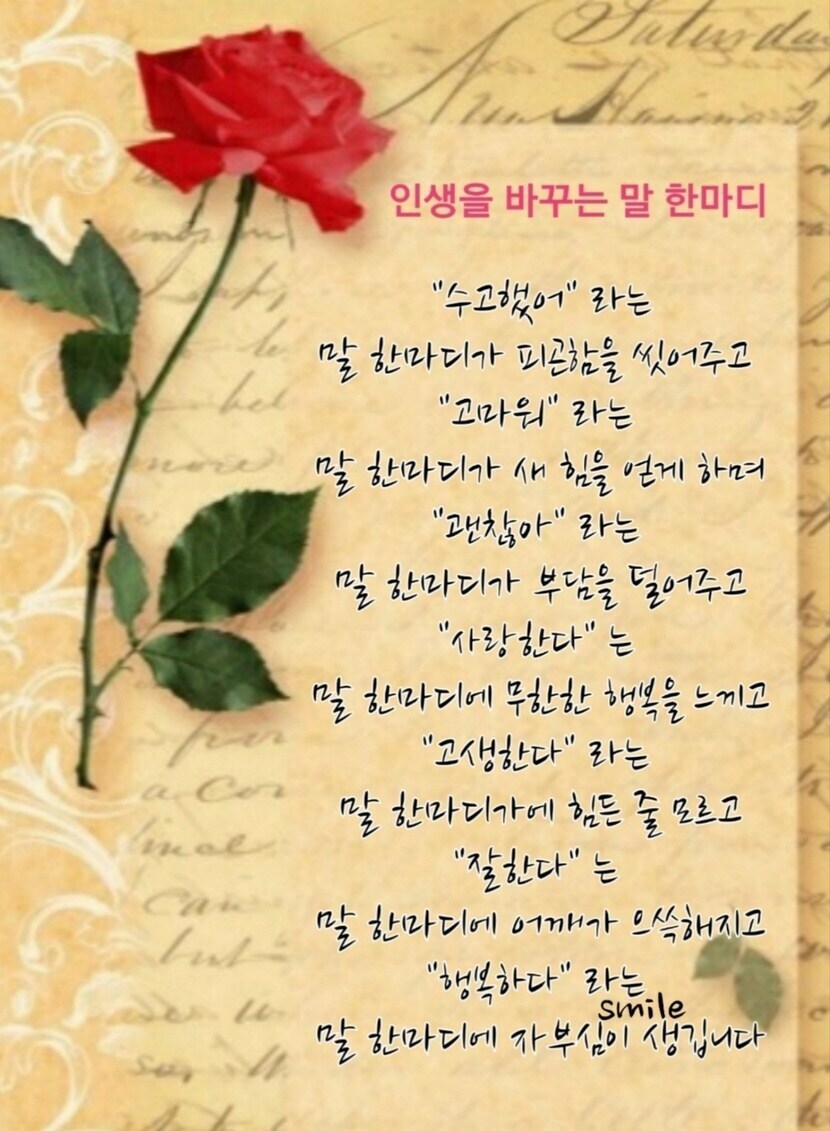 Saturday
인생을 바꾸는 말 한마디
"수고했어" 라는
말 한마디가 피곤함을 씻어주고
"고마워" 라는
말 한마디가 새 힘을 얻게 하며
"괜찮아" 라는
말 한마디가 부담을 덜어주고
"사랑한다" 는
말 한마디에 무한한 행복을 느끼고
"고생한다" 라는
말 한마디가에 힘든 줄 모르고
"잘한다" 는
말 한마디에 어깨가 으쓱해지고
"행복하다" 라는
smile
말 한마디에 자부심이 생깁니다